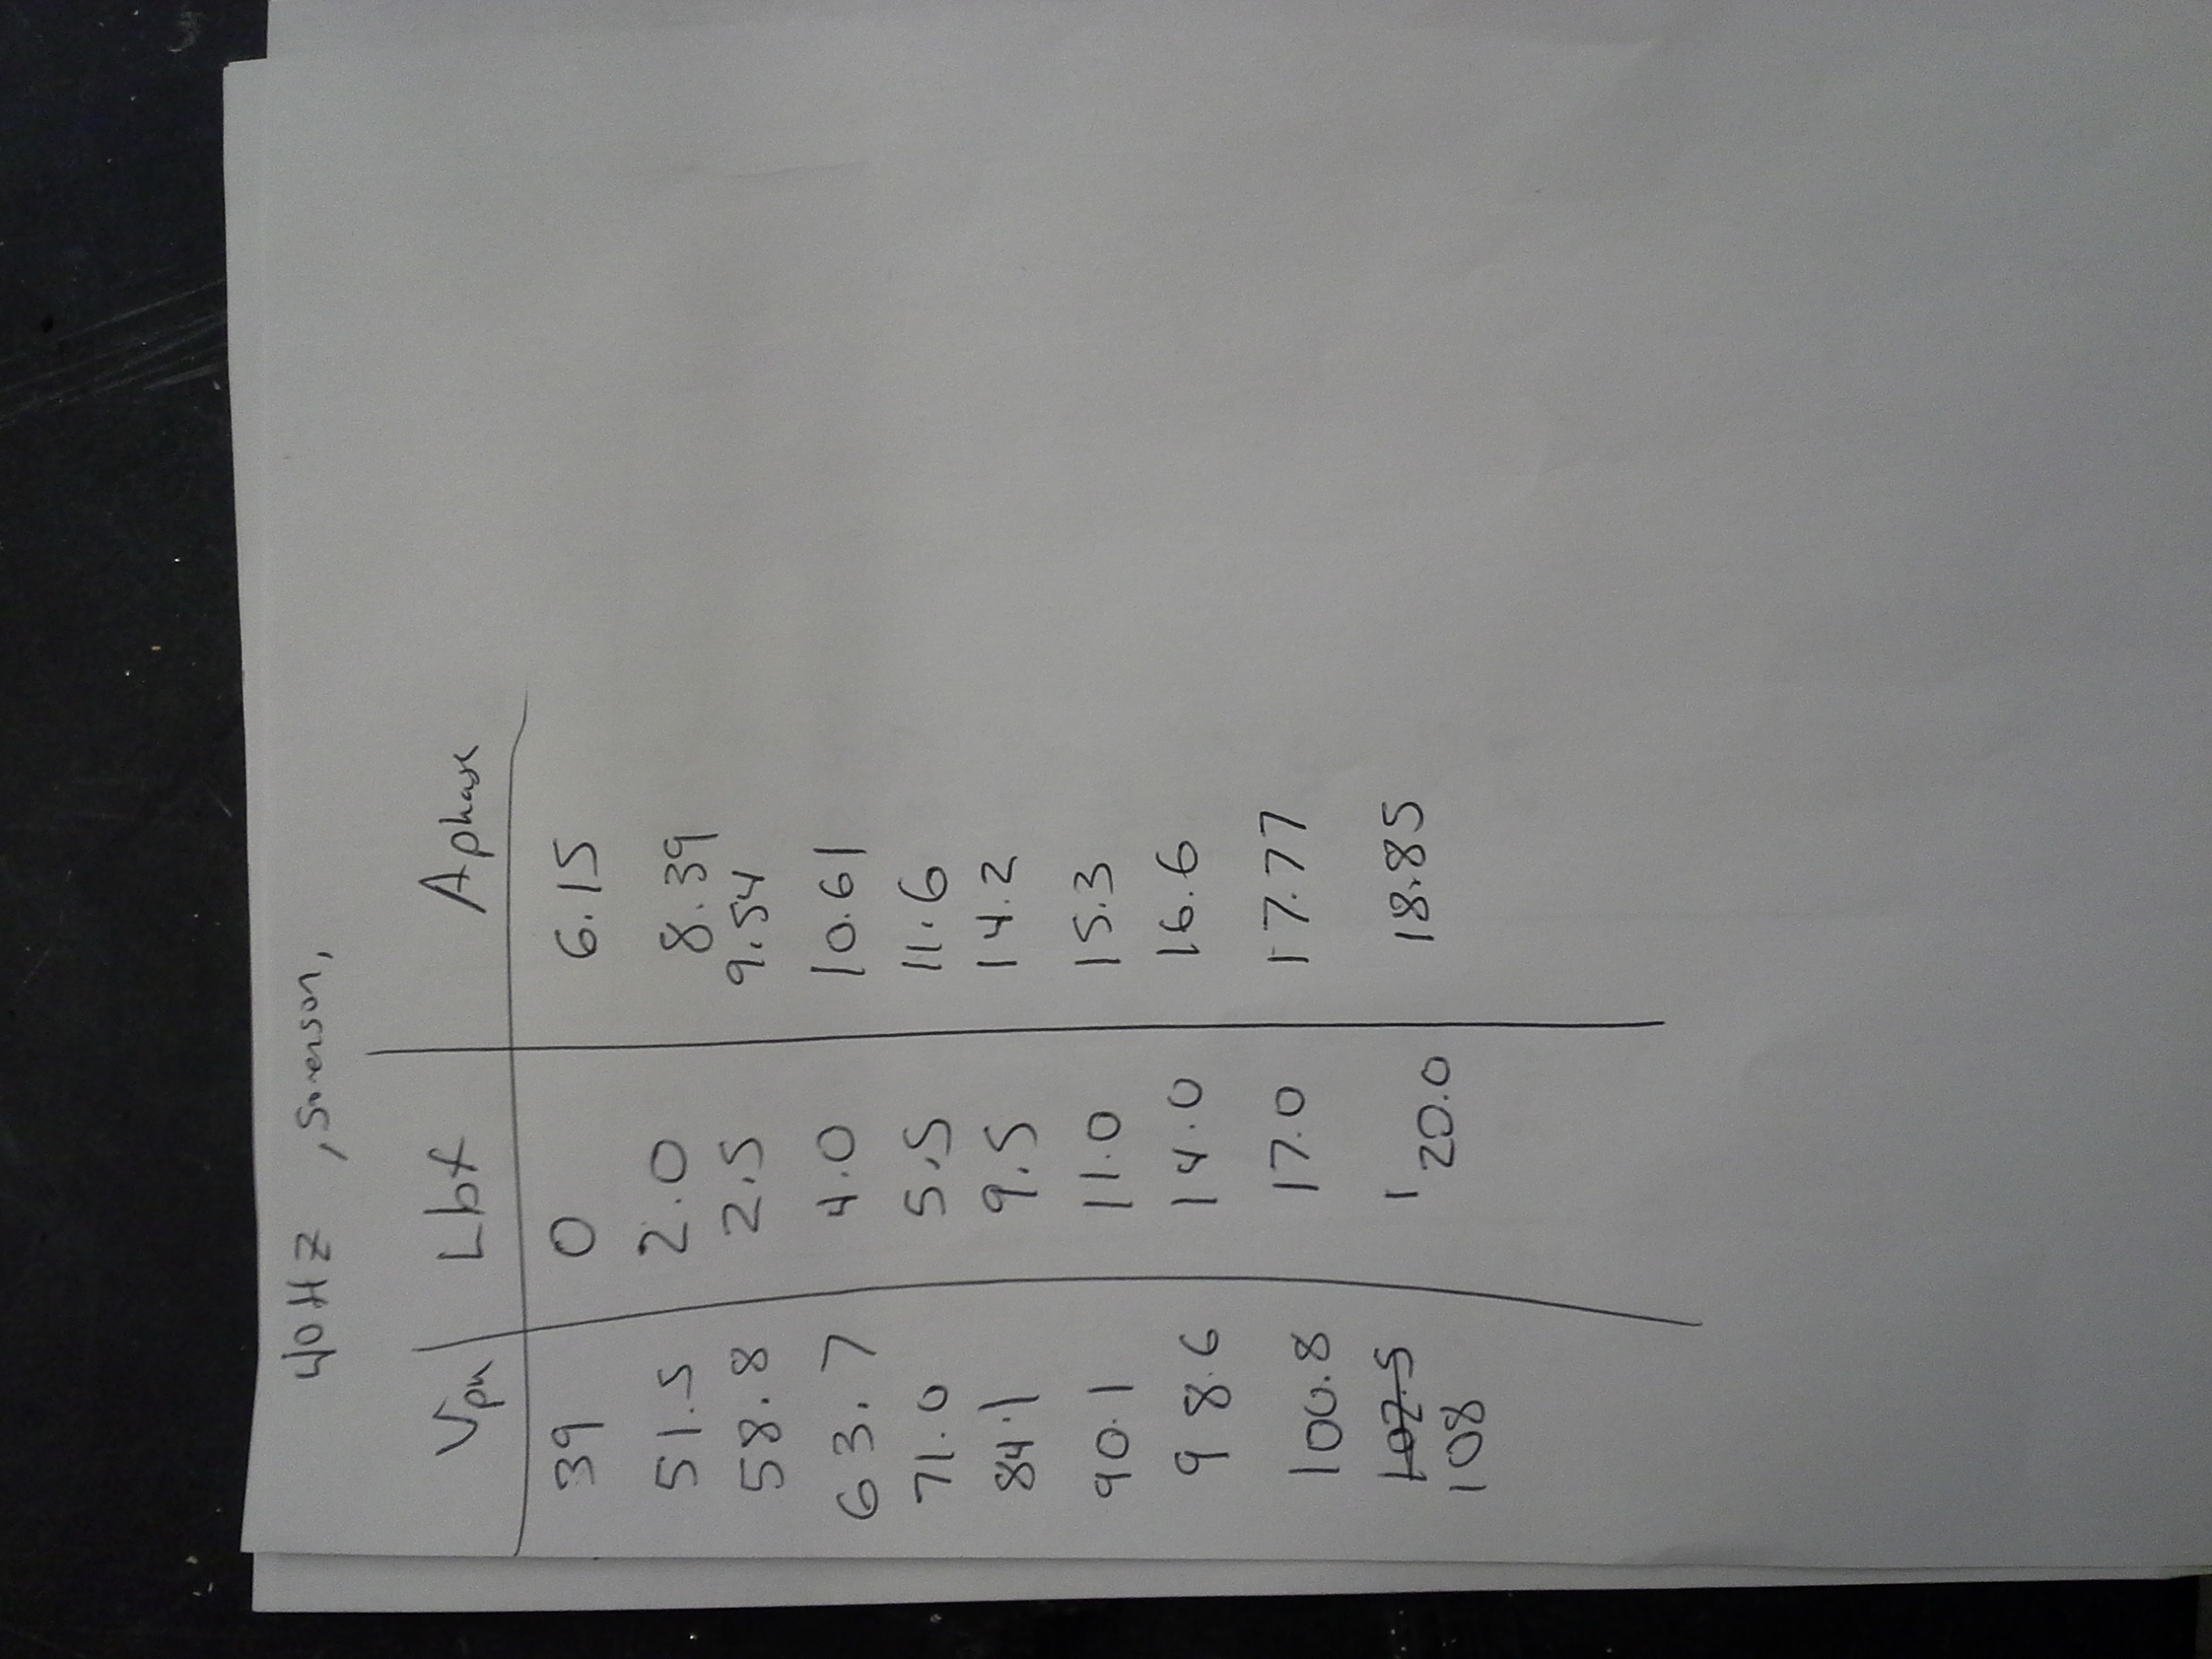 40 Hz , Sorenson,
Vpk Lbf Aphase
39 0 6.15
51.5 2.0 8.39
58.8 2.5 9.54
63.7 4.0 10.61
71.0 5.5 11.6
84.1 9.5 14.2
90.1 11.0 15.3
98.6 14.0 16.6
100.8 17.0 17.77
102.5
108 20.0 18.85